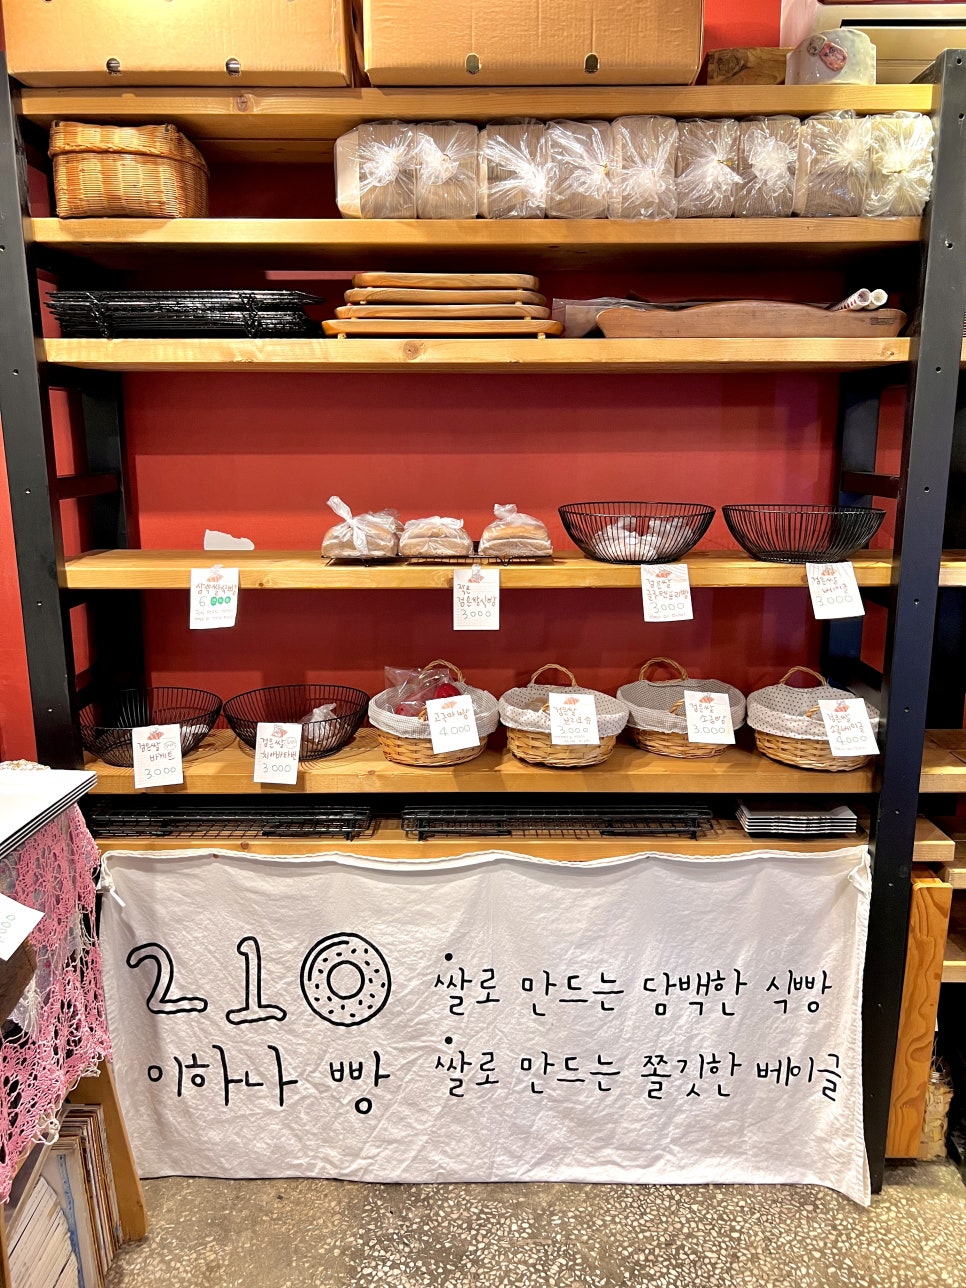 작은
검은쌀식빵
3.000
검은쌀
글루텐프리빵
3.000
검은쌀
베이글
3.000
검은쌀
바게트
3000
검은쌀
치아바타
3000
고구마빵
4.000
검은쌀
3.000
검은쌀
소금빵
3.000
검은쌀
소금베이글
4.000
210
이하나 빵
쌀로 만드는 담백한 식빵
쌀로 만드는 쫄깃한 베이글